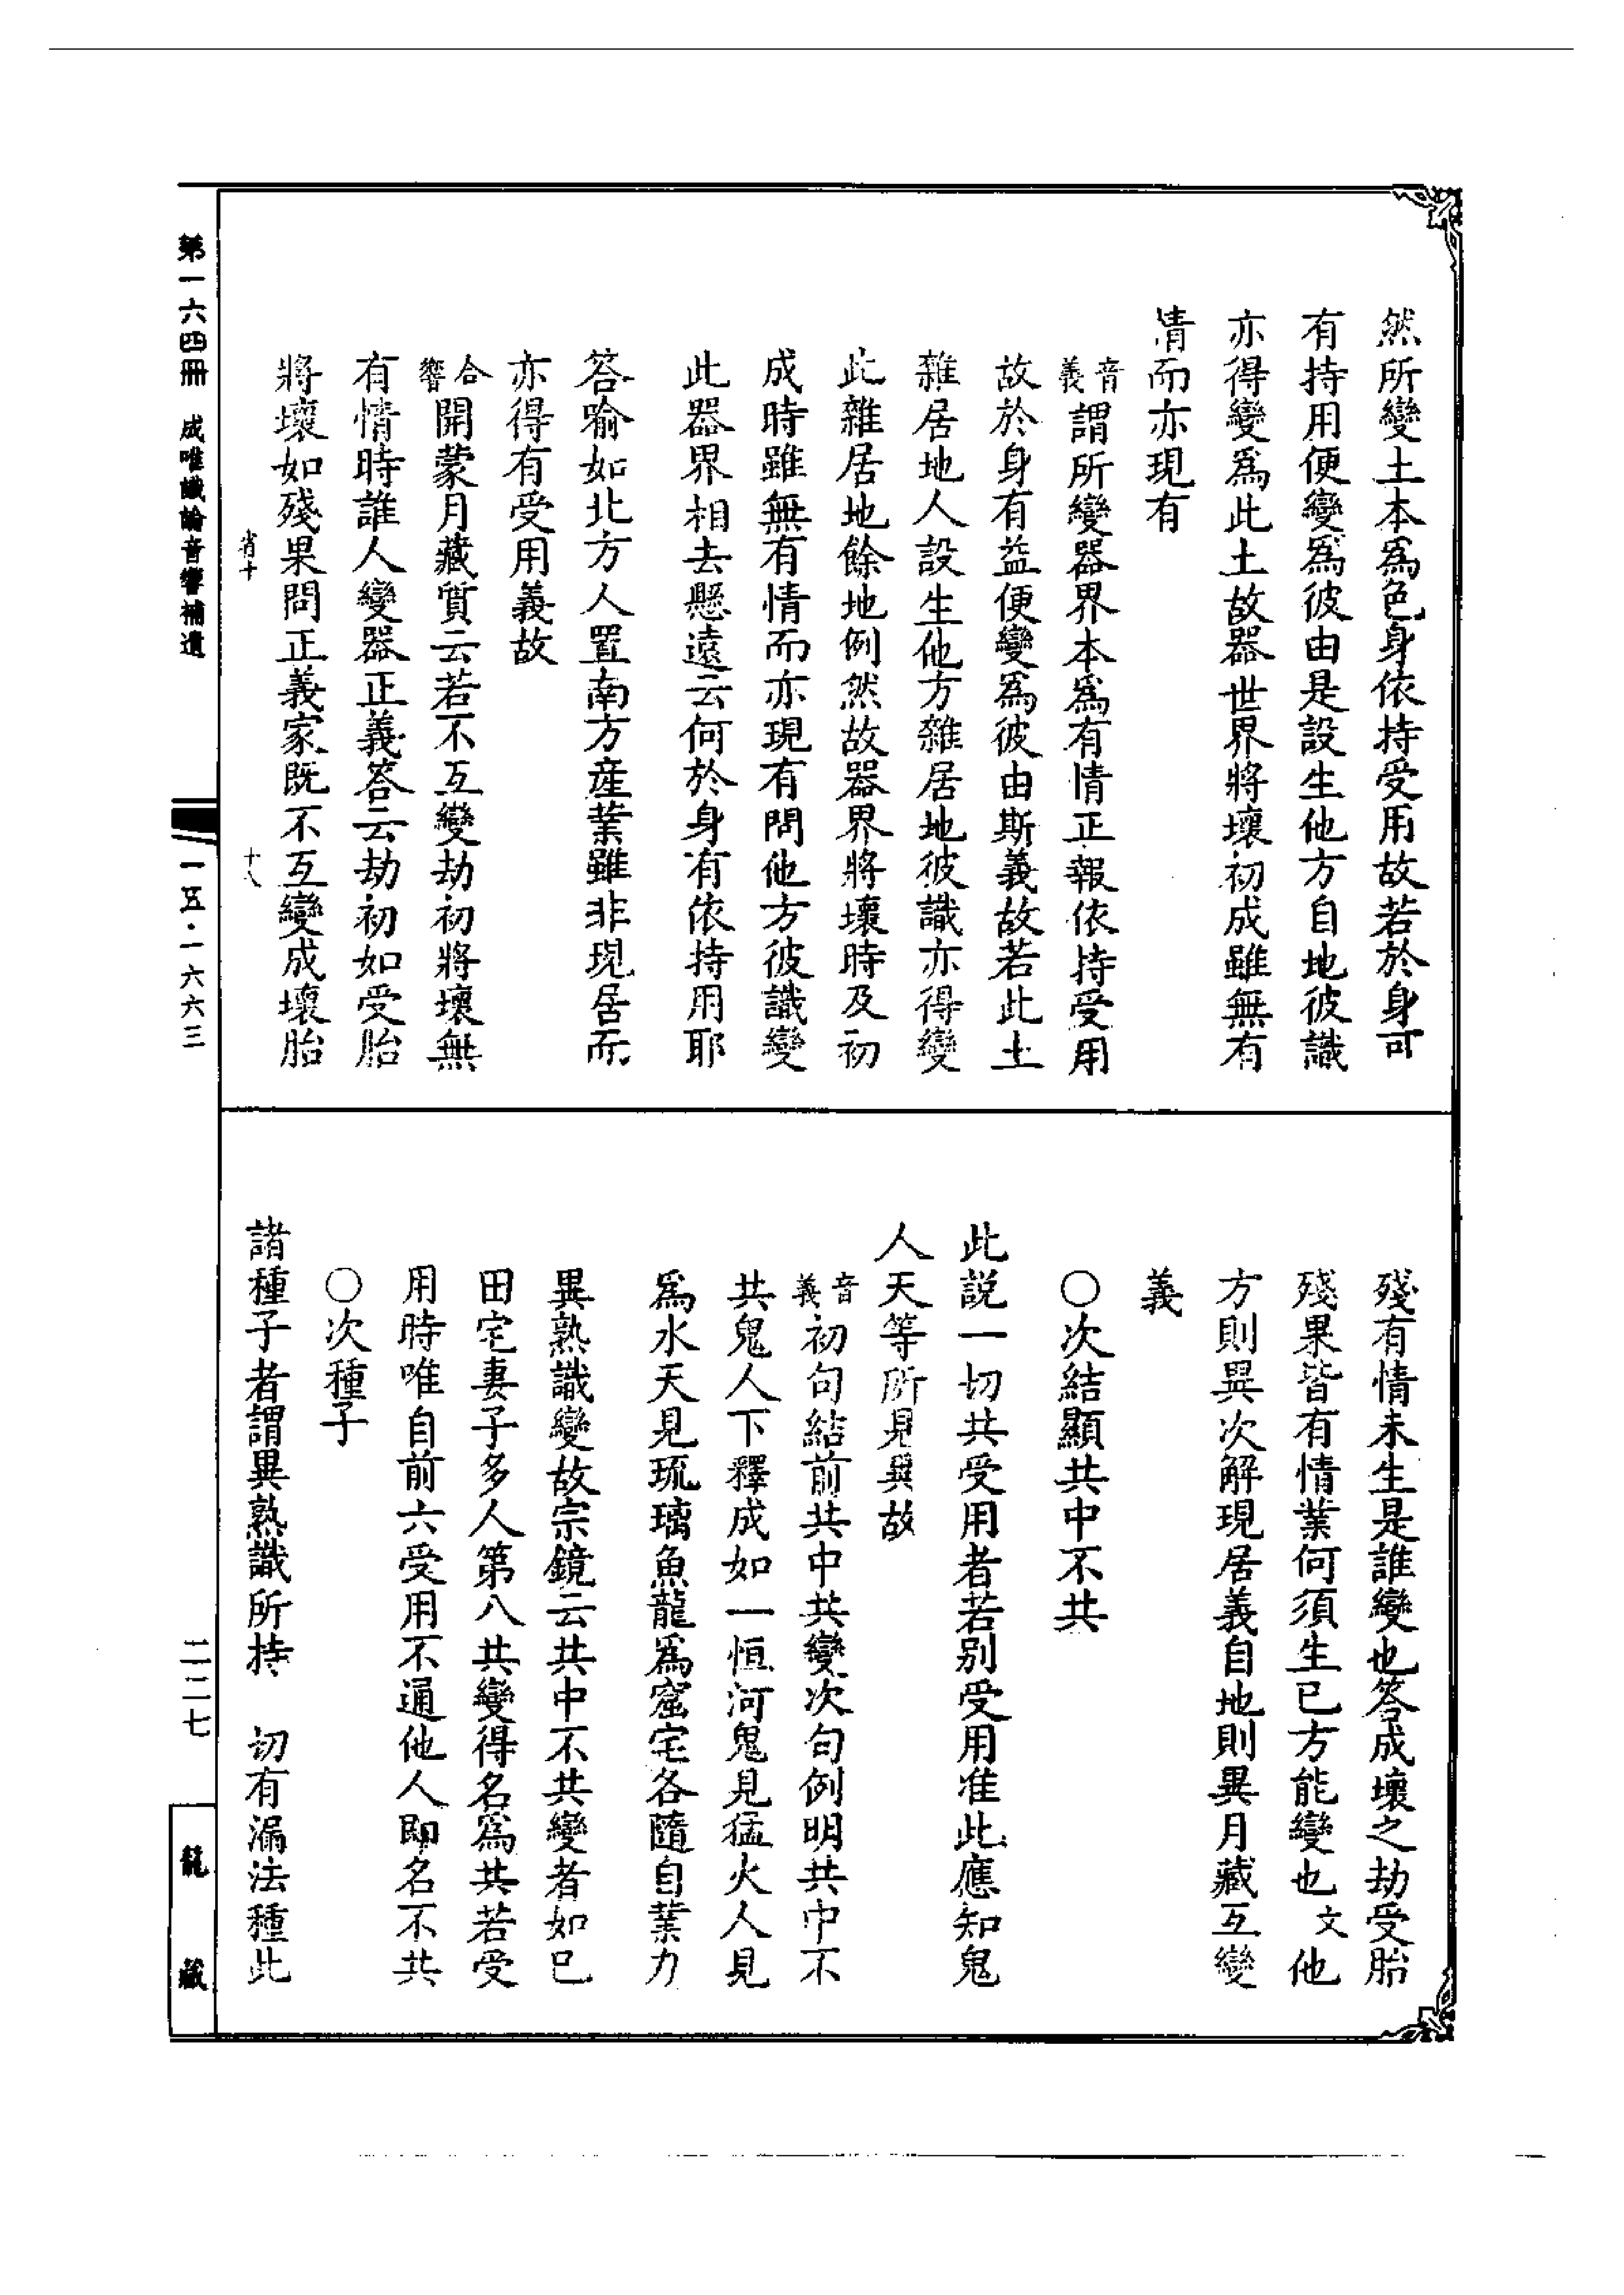 然所變土本爲色身依持受用故若於身可
有持用便變爲彼由是設生他方自地彼識
亦得變爲此土故器世界將壞初成雖無有
情而亦現有
音義謂所變器界本爲有情正報依持受用
故於身有益便變爲彼由斯義故若此土
雜居地人設生他方雜居地彼識亦得變
此雜居地餘地例然故器界將壞時及初
成時雖無有情而亦現有問他方彼識變
此器界相去懸遠云何於身有依持用耶
答喻如北方人置南方産業雖非現居而
亦得有受用義故
合響開蒙月藏質云若不互變劫初將壞無
有情時誰人變器正義答云劫初如受胎
將壞如殘果問正義家既不互變成壞胎
省十
十八
殘有情未生是誰變也答成壞之劫受胎
殘果皆有情業何須生已方能變也文他
方則異次解現居義自地則異月藏互變
義
○次結顯共中不共
此説一切共受用者若别受用准此應知鬼
人天等所見異故
音義初句結前共中共變次句例明共中不
共鬼人下釋成如一恒河鬼見猛火人見
爲水天見琉璃魚龍爲窟宅各隨自業力
異熟識變故宗鏡云共中不共變者如已
田宅妻子多人第八共變得名爲共若受
用時唯自前六受用不通他人即名不共
○次種子
諸種子者謂異熟識所持 切有漏法種此
第一六四冊 成唯識論音響補遺
一五·一六六三
二二七
龍藏